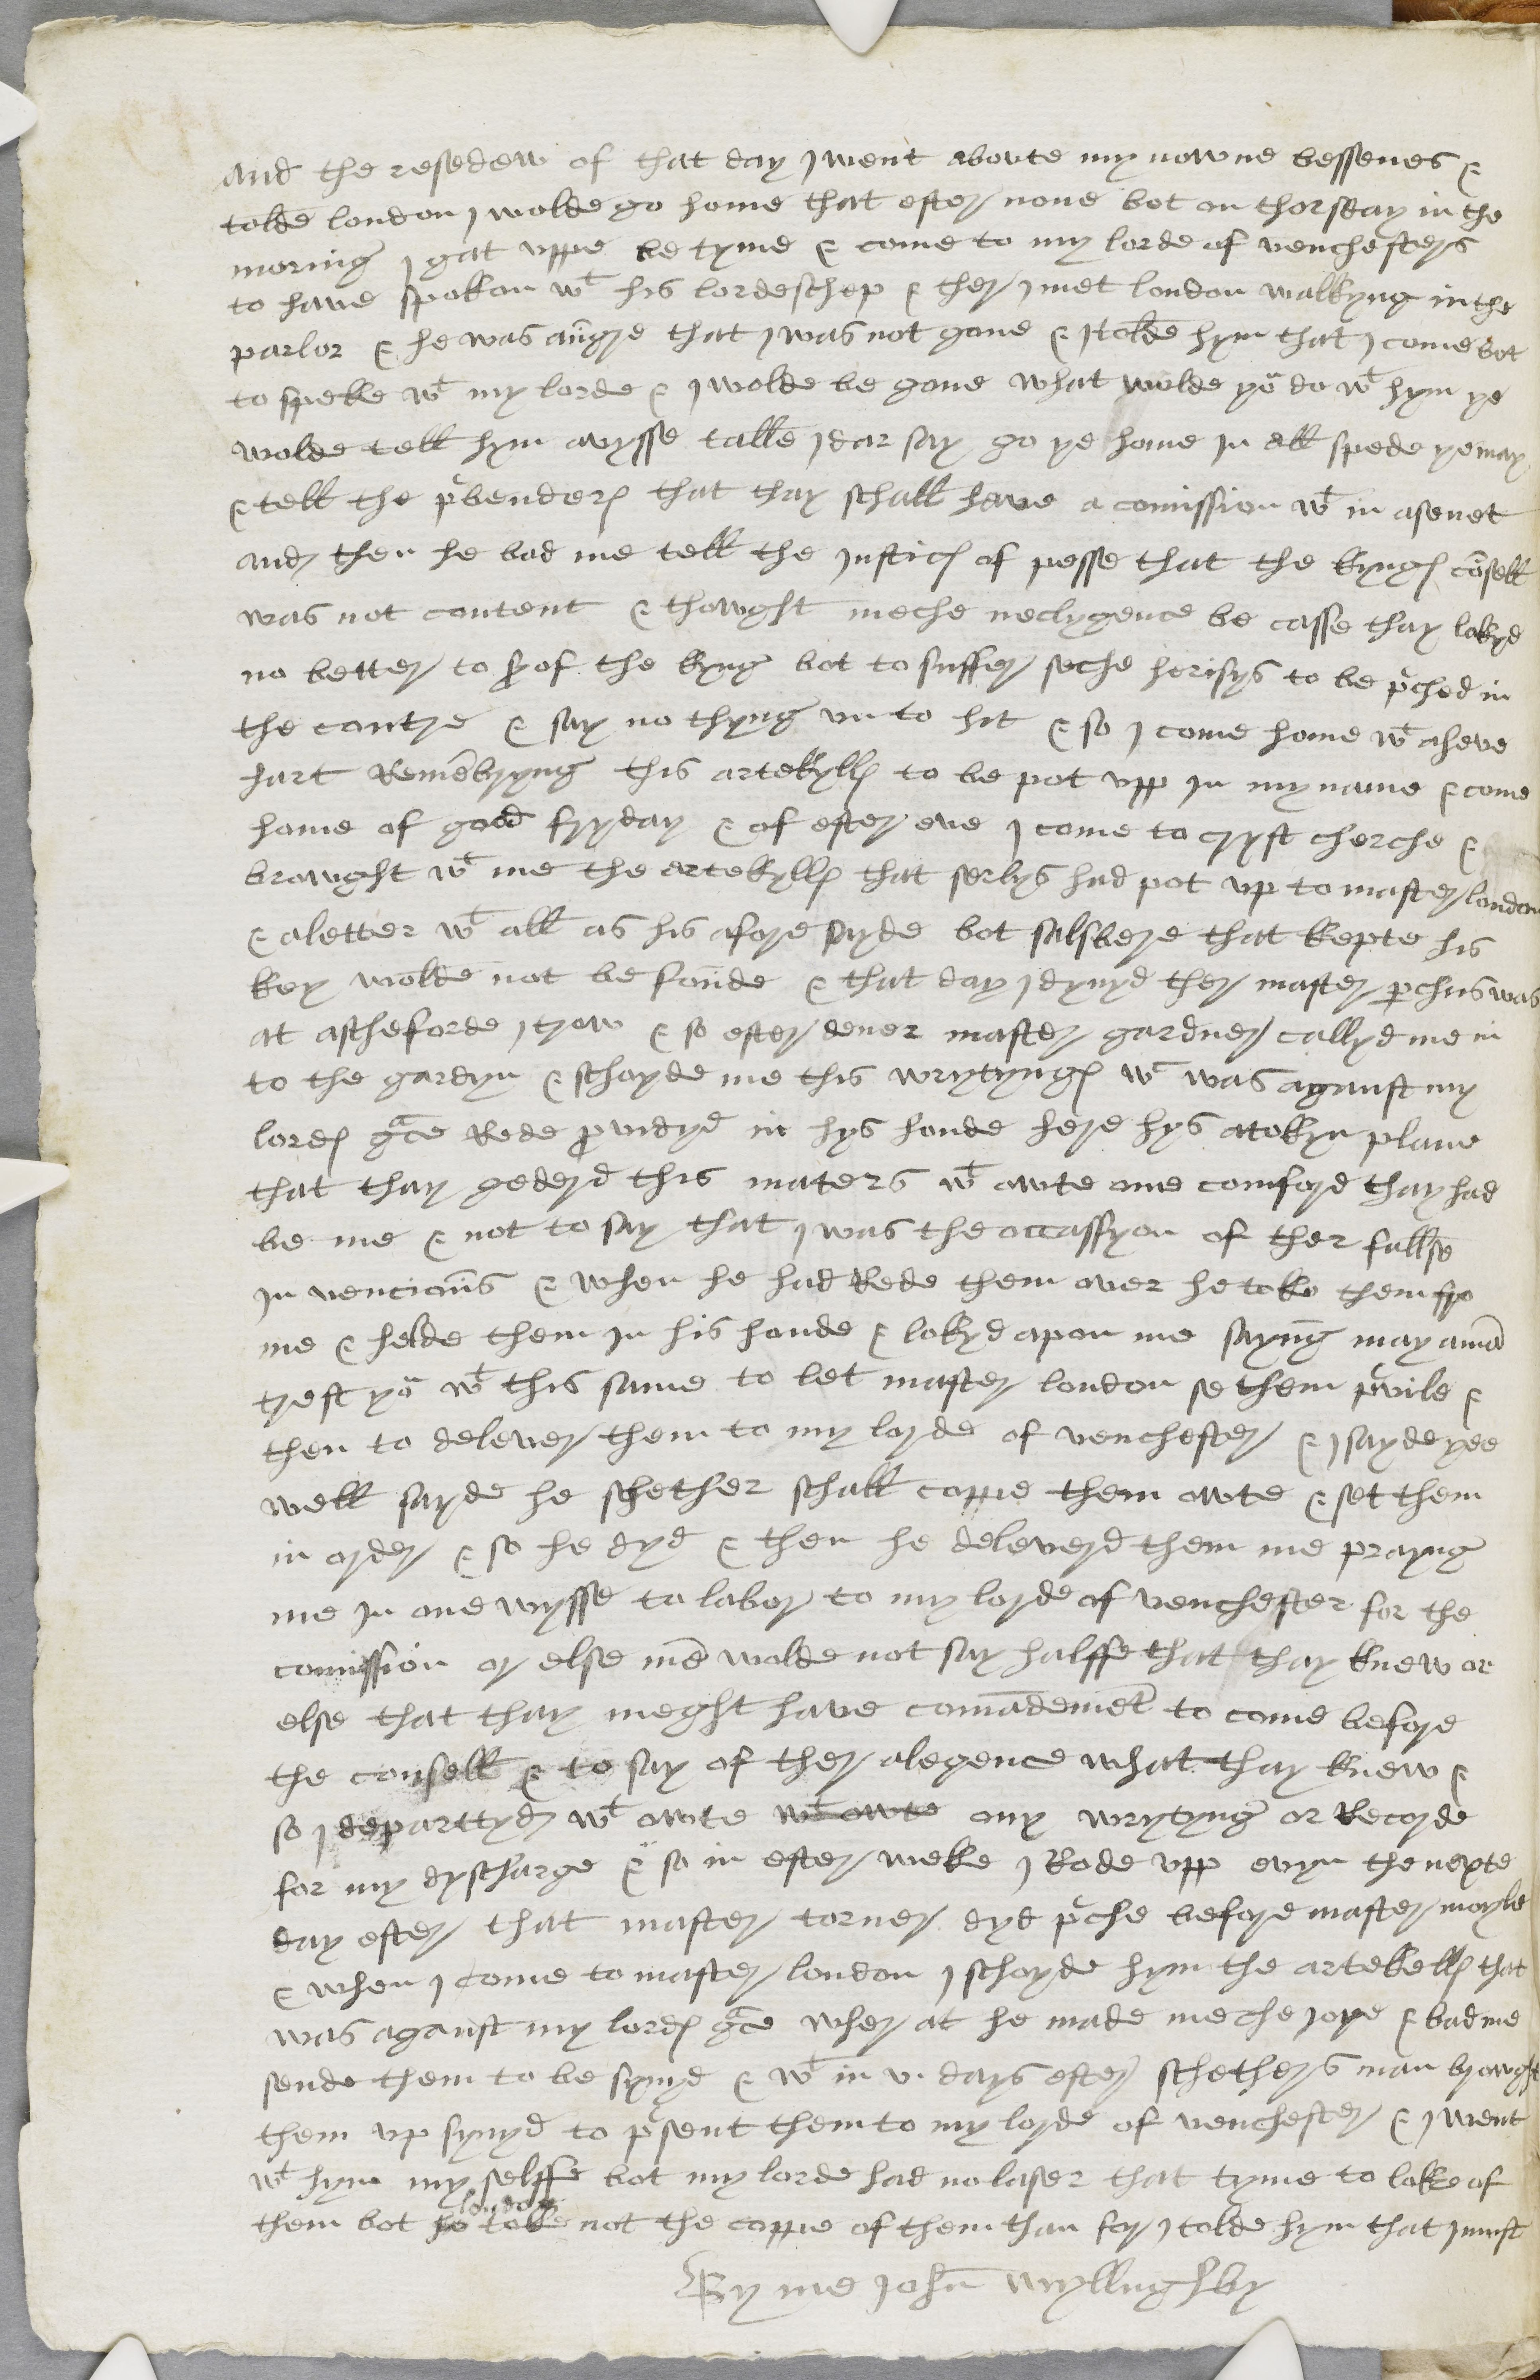 And the resedew of that day I went abovte my nowne bessenes &
tolde london I wolde go home that efter none bot on thorsday in the
moring I gat vppe be tyme & come to my lorde of venchesters
to have spokon wt his lordeschep & ther I met london walkyng in the
parlor & he was angre that I was not gone & I tolde hym that I come bot
to speke wt my lorde & I wolde be gone what wolde yo do wt hym ye
wolde tell hym avysse talle I dar say go ye home in all spede ye may
& tell the pbenders that thay schall have a comission wt in a senet
and then he bad me tell the Justics of pesse that the kyngs consell
was not content & thowght meche neclygence be casse thay lokyd
no better to prof the kyng bot to suffer seche herisys to be pched in
the contre & say no thyng vn to hit & so I come home wt a heve
hart Remembryng this artekylls to be pot vpp in my name & come
home of good fryday & of ester eve I come to cryst cherche &
browght wt me the artekylls that serlys had pot vp to master london
& a letter wt all as his afore sayde bot salsbere that kepte his
key wolde not be fonde & that day I dynyd ther master parchus was
at ascheforde I trow & so efter dener master gardner callyd me in
to the gardyn & schoyde me this wrytyngs wc was aganst my
lords grace Rede providyd in hys honde here hys a tokyn plane
that thay gederyd this maters wt owte one comford thay had
be me & not to say that I was the occassyon of ther fallse
In vencions & when he had Rede them over he toke them fro
me & helde them in his honde & lokyd apon me sayng may a man
trest yo wt this same to let master london se them pvile &
then to delever them to my lorde of venchester & I sayde yee
well sayde he schether schall coppe them owte & set them
in order & so he dyd & then he deleveryd them me prayng
me in one wysse to labor to my lorde of venchester for the
comission or else men wolde not say halffe that thay knew or
else that thay meght have comandement to come before
the consell & to say of ther alegence what thay knew &
so I departtyd wt owte wt owte ony wrytyng or Recorde
for my dyscharge & so in ester weke I Rode vpp evyn the nexte
day efter that master torner dyd pche before master moyle
& when I come to master london I schoyde hym the artekells that
was aganst my lords grace wher at he made meche Joye & bad me
sende them to be synyd & wt in v. days efter schethers man browght
them vp synyd to psent them to my lorde of venchester & I went
wt hym my selffe bot my lorde had no laser that tyme to loke of
them bot he london toke not the coppe of them than for I tolde hym that I must
By me John Wyllughby